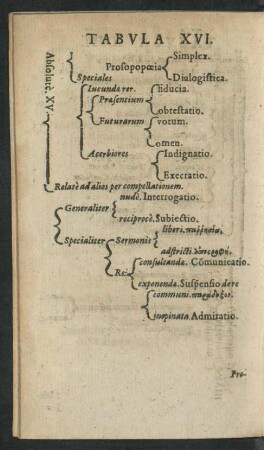 TABVLA XVI.
Absolutè. XV
Simplex.
Prosopopœia
Speciales Dialogistica.
Iucunda rer. fiducia.
Præsentium
obtestatio.
Futurarum votum.
omen.
Acerbiores Indignatio.
Execratio.
Relatè ad alios per compellationem.
nudè. Interrogatio.
Generaliter
reciprocè. Subiectio.
liberi. παῤῥησία,
Specialiter Sermonis
adstricti.
consultandæ. Cõmunicatio.
Rei
exponendæ. Suspensio de re
communi. παράδοξον.
inopinata Admiratio.
Pro-